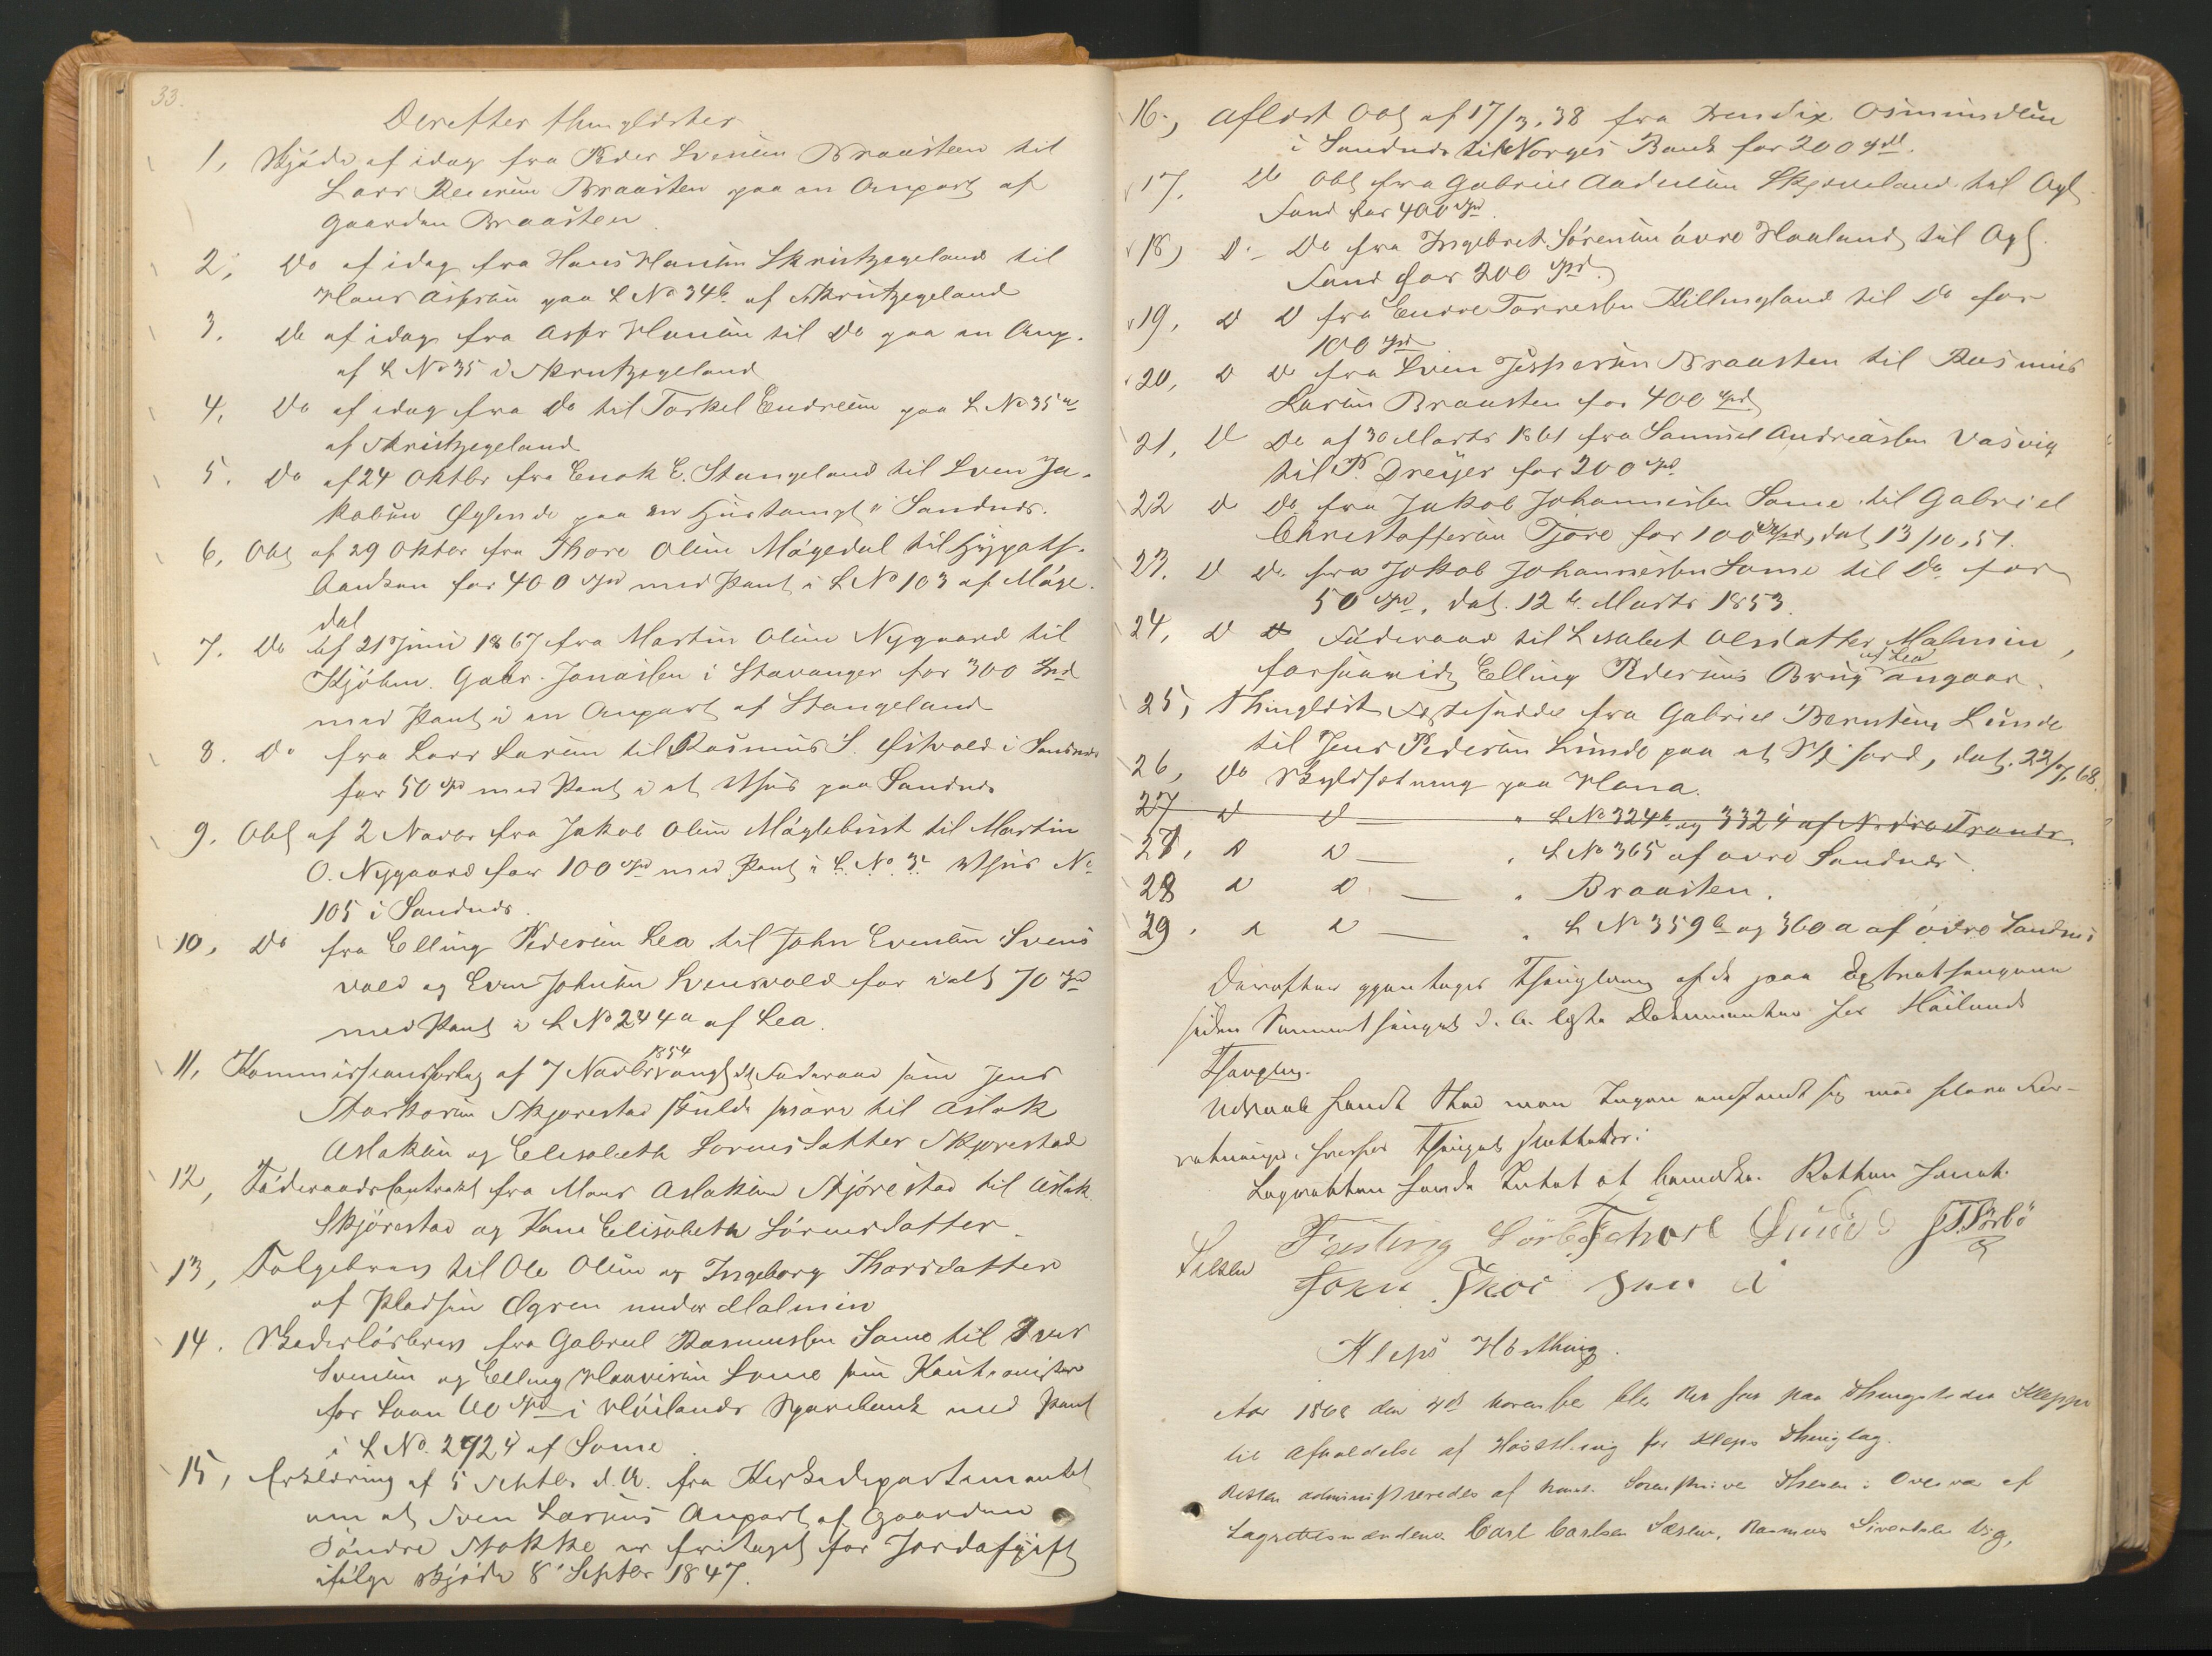 33.
Derefter thinglæstes
1, Skjøde af idag fra Peder Svensen Braasten til
Lars Braasten paa en Anpart af
Gaarden Braasten
2, Do af idag fra Hans Hansen Skrudzegeland til
Hans paa L No 34b af Skrudzegeland
3. Do af idag fra Hansen til Do paa en Anp.
af L No 35 i Skrudzegeland
4, Do af idag fra Do til Torkel Endresen paa L No 35a
af Skrudzegeland
5. Do af 24 Oktbr fra Enok E. Stangeland til Sven Ja-
kobsen paa en Hustompt i Sandnæs.
6, Obl af 29 Oktbr fra Thore Olsen Møgedal til Hypoth.
banken for 400 Spd med Pant i L No 103 af Møge-
dal
7. Do af 21 Juni 1867 fra Martin Olsen Nygaard til
Kjøbm. Gabr. Jonassen i Stavanger for 300 Spd
med Pant i en Anpart af Stangeland
8. Do fra Lars Larsen til Rasmus S. Østvold i Sandnæs
for 50 Spd med Pant i et Huus paa Sandnæs
9. Obl af 2 Novbr fra Jakob Olsen Møglebust til Martin
O. Nygaard for 100 Spd med Pant i L. No. Huus No
105 i Sandnæs
10, Do fra Elling Pedersen Lea til John Evensen Svens
vold og Even Johnsen Svensvold for ialt 70 Spd
med Pant i L No 244a af Lea.
11, Kommissionsforlig af 7 Novbr 1854 ang. det Føderaad som Jens
Skjørestad skulde svare til Aslak
Aslaksen og Elisabeth Sørensdatter Skjørestad
12, Føderaadscontrakt fra Mons Aslaksen Skjørestad til Aslak
Skjørestad og Kone Elisabeth Sørensdatter.
13, Følgebrev til Ole Olsen og Ingeborg Thorsdatter
af Pladsen Øgren under Malmin
14. Skadesløsbrev fra Gabriel Rasmussen Some til Iver
Svensen og Elling Some som Kautionister
for Laan Spd i Høilands Sparebank med Pant
i L No. af Some
15, Erklæring af 5 Septbr d. A. fra Kirkedepartementet
om at Sven Larsens Anpart af Gaarden
Søndre Stokke er fritaget for Jordafgift
ifølge Skjøde 8 Septbr 1847.
16., Aflæst Obl af 17/3.38 fra Bendix Osmundsen
i Sandnæs til Norges Bank for 200 Spd.
17. Do Obl fra Gabriel Aadnesen Skjæveland til Opl.
Fond for 400 Spd.
18, D. Do fra Ingebret Sørensen øvre Haaland til Opl.
Fond for 200 Spd.
19, D D fra Endre Torresen Killingland til Do for
100 Spd
20, D D fra Sven Jespersen Braasten til Rasmus
Larsen Braasten for 400 Spd
21, D Do af 30 Marts 1861 fra Samuel Andreassen Vasvig
til P. Dreyer for 200 Spd
22 D Do fra Jakob Johannessen Some til Gabriel
Christoffersen Tjore for 100 Spd, dat 13/10.51.
23. D Do fra Jakob Johannessen Some til Do for
50 Spd, dat. 12te Marts 1853.
24, D D Føderaad til Lisabet Olsdatter Malmin,
forsaavidt Elling Pedersens Brug af Lea angaar.
25, Thinglæst Festeseddel fra Gabriel Berntsen Lunde
til Jens Pedersen Lunde paa et St. Jord, dat. 22/7.68.
26, Do Skyldsætning paa Hana.
27 D D — " L No 324b og 332 af Nedre Tronds
27, D D — " L No 365 af øvre Sandnæs
28 D D — " Braasten.
29. D D — " L No 359b og 360a af øvre Sandnæs
Derefter gjentoges Thinglæsning af de paa Extrathingene
siden Sommerthinget d. A. læste Dokumenter for Høilands
Thinglag.
Udraab skeedt hvad man Ingen indfandt sig med flere For-
retninger, hvorfor Thinget sluttedes.
Lagretten havde Intet at bemærke. Retten hævet.
John
Kleps Høstthing.
Aar 1868 den 4de November blev Ret sat paa Thingstedet Kleppe
til Afholdelse af Høstthing for Kleps Thinglag.
Retten administreredes af const. Sorenskriver i Overvær af
Lagrettesmændene Carl Carlsen Sæslen, Rasmus Sivertsen Vig,